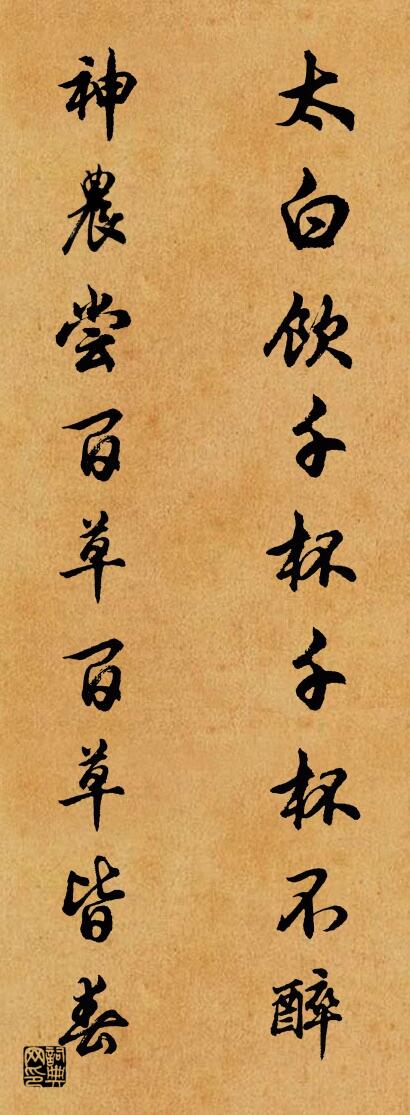 太白饮千杯千杯不醉
神農尝百草百草皆春
詞典网印